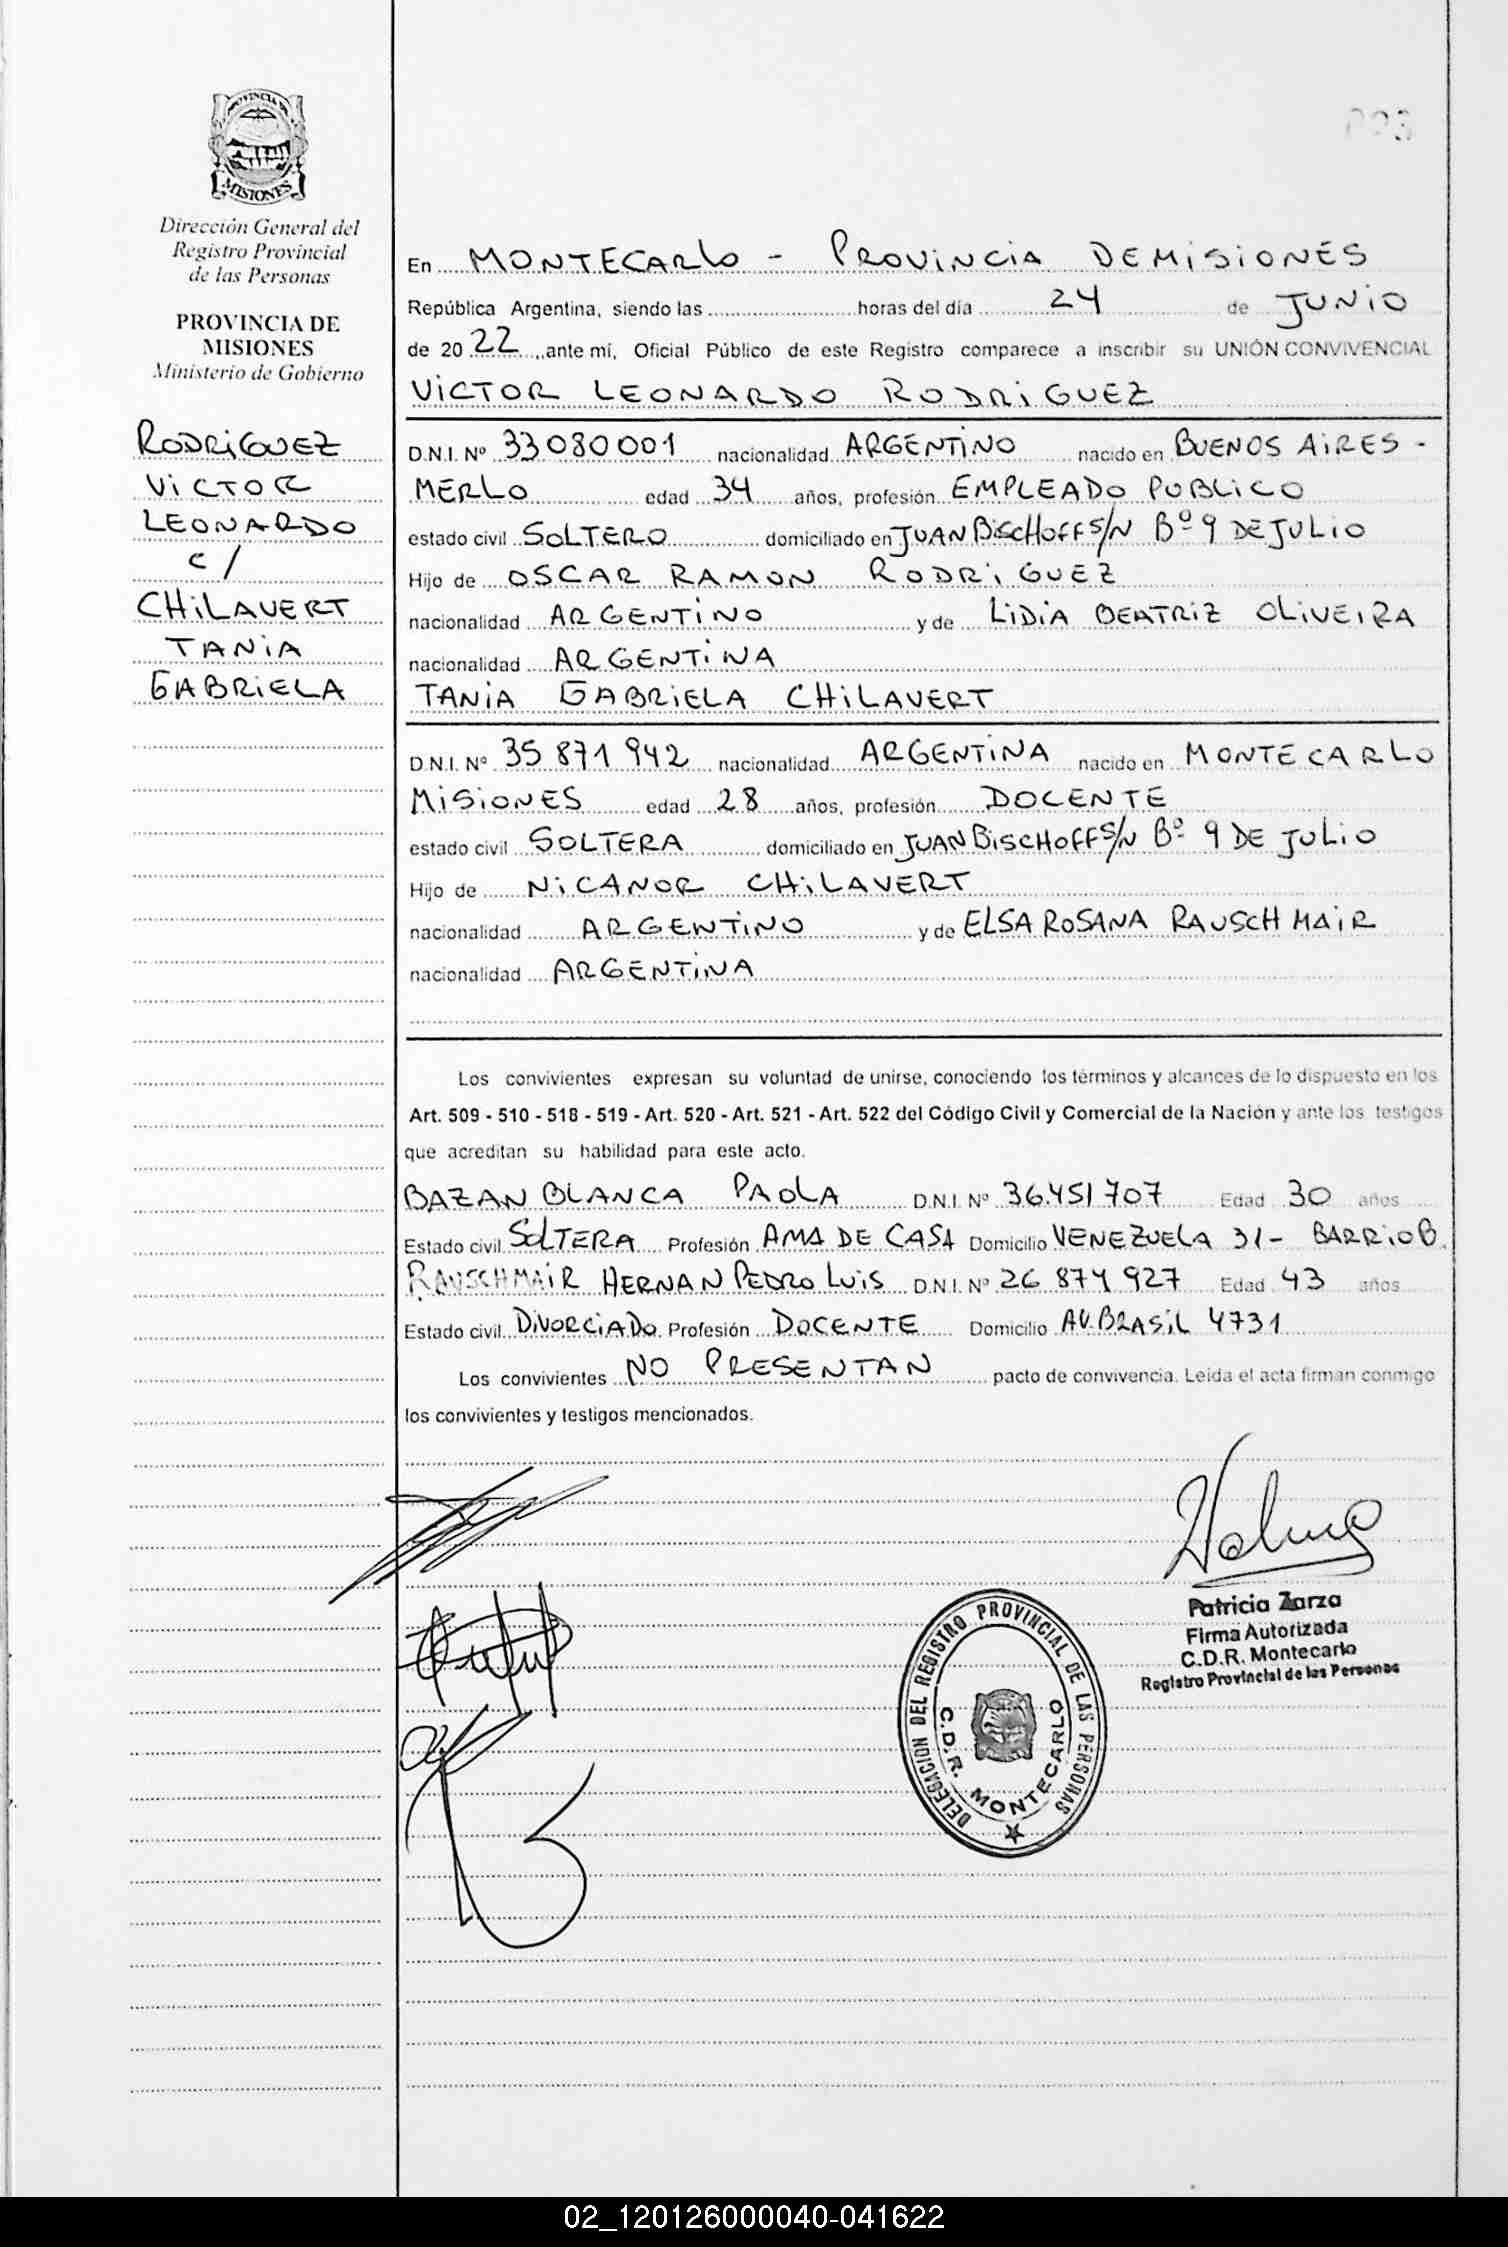 PROVINCIA DE
MISIONES
Dirección General del
Registro Provincial
de las Personas
PROVINCIA DE
MISIONES
Ministerio de Gobierno
RODRIGUEZ
VICTOR
LEONARDO
C/
CHILAVERT
TANIA
GABRIELA
En MONTECARLO - PROVINCIA DE MISIONES
República Argentina, siendo las horas del día 24 de JUNIO
de 20 22, ante mí, Oficial Público de este Registro comparece a inscribir su UNIÓN CONVIVENCIAL
VICTOR LEONARDO RODRIGUEZ
D.N.I. Nº 33080001 nacionalidad ARGENTINO nacido en BUENOS AIRES -
MERLO edad 34 años, profesión EMPLEADO PUBLICO
estado civil SOLTERO domiciliado en JUAN BISCHOFF S/N Bº 9 DE JULIO
Hijo de OSCAR RAMON RODRIGUEZ
nacionalidad ARGENTINO y de LIDIA BEATRIZ OLIVEIRA
nacionalidad ARGENTINA
TANIA GABRIELA CHILAVERT
D.N.I. Nº 35 871 942 nacionalidad ARGENTINA nacido en MONTECARLO
MISIONES edad 28 años, profesión DOCENTE
estado civil SOLTERA domiciliado en JUAN BISCHOFF S/N Bº 9 DE JULIO
Hijo de NICANOR CHILAVERT
nacionalidad ARGENTINO y de ELSA ROSANA RAUSCHMAIR
nacionalidad ARGENTINA
Los convivientes expresan su voluntad de unirse, conociendo los términos y alcances de lo dispuesto en los
Art. 509 - 510 - 518 - 519 - Art. 520 - Art. 521 - Art. 522 del Código Civil y Comercial de la Nación y ante los testigos
que acreditan su habilidad para este acto.
BAZAN BLANCA PAOLA D.N.I. Nº 36.451 707 Edad 30 años
Estado civil SOLTERA Profesión AMA DE CASA Domicilio VENEZUELA 31 - BARRIO B.
RAUSCHMAIR HERNAN PEDRO LUIS D.N.I. Nº 26 874 927 Edad 43 años
Estado civil DIVORCIADO Profesión DOCENTE Domicilio AV. BRASIL 4731
Los convivientes NO PRESENTAN pacto de convivencia. Leida el acta firman conmigo
los convivientes y testigos mencionados.
Patricia Zarza
Firma Autorizada
C.D.R. Montecarlo
Registro Provincial de las Personas
DELEGACION DEL REGISTRO PROVINCIAL DE LAS PERSONAS
C.D.R. MONTECARLO
02_120126000040-041622